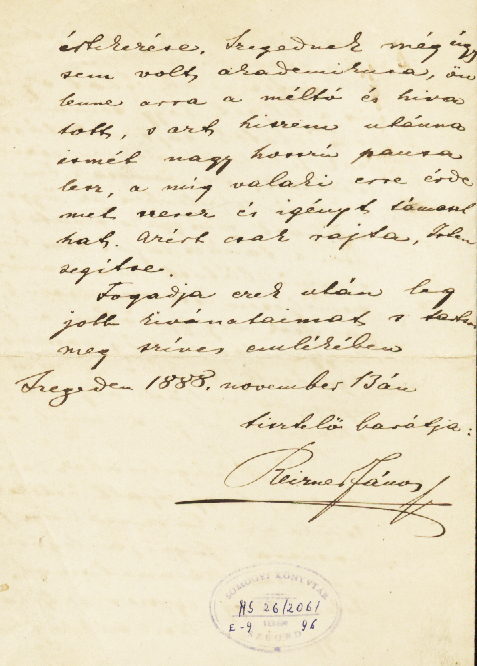 értekezése. Szegednek még úgy
sem volt akademikusa, ön
lenne arra a méltó és hiva
tott, s azt hiszem utánna
ismét nagy hosszú pausa
lesz, a míg valaki erre érde
met szerez és igényt támaszt
hat. Azért csak rajta, Isten
segítse.
Fogadja ezek után leg
jobb kivánataimat s tartson
meg szíves emlékében
Szegeden 1888. november 13án
tisztelő barátja:
Reizner János
SOMOGYI KÖNYVTÁR
MS 26/2061
E-9 96
SZEGED